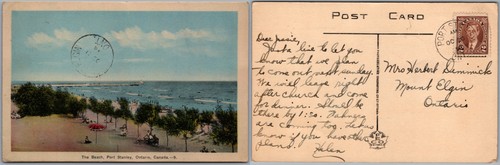 The Beach, Port Stanley, Ontario, Canada.—6.
POST CARD
Dear Jessie,
Just a line to let you
know that we plan
to come out next Sunday.
We will leave right
after church and come
for dinner. Shall be
there by 1:30.
are coming too. Let us
know if you have other
plans.
Helen
Mrs Herbert Dimmick
Mount Elgin
Ontario
PORT
OC
2